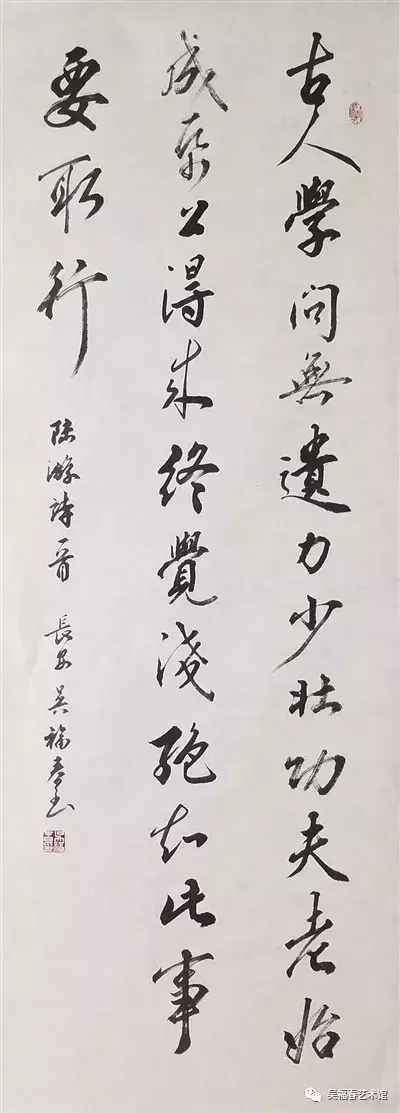 古人學問無遺力少壯功夫老始
成帋上得來終覺淺絕知此事
要躬行
陸游詩一首 長安吴福春书
吴福春艺术馆